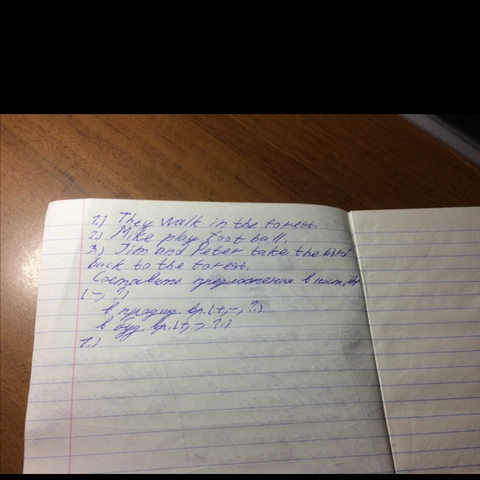 1.) They walk in the forest.
2) Mike play football.
3) Jim and Peter take the bird
back to the forest.
Составить предложения в наст. вр
(-, ?)
в прошед. вр. (+, -, ?)
в буд. вр. (+, -, ?)
1.)